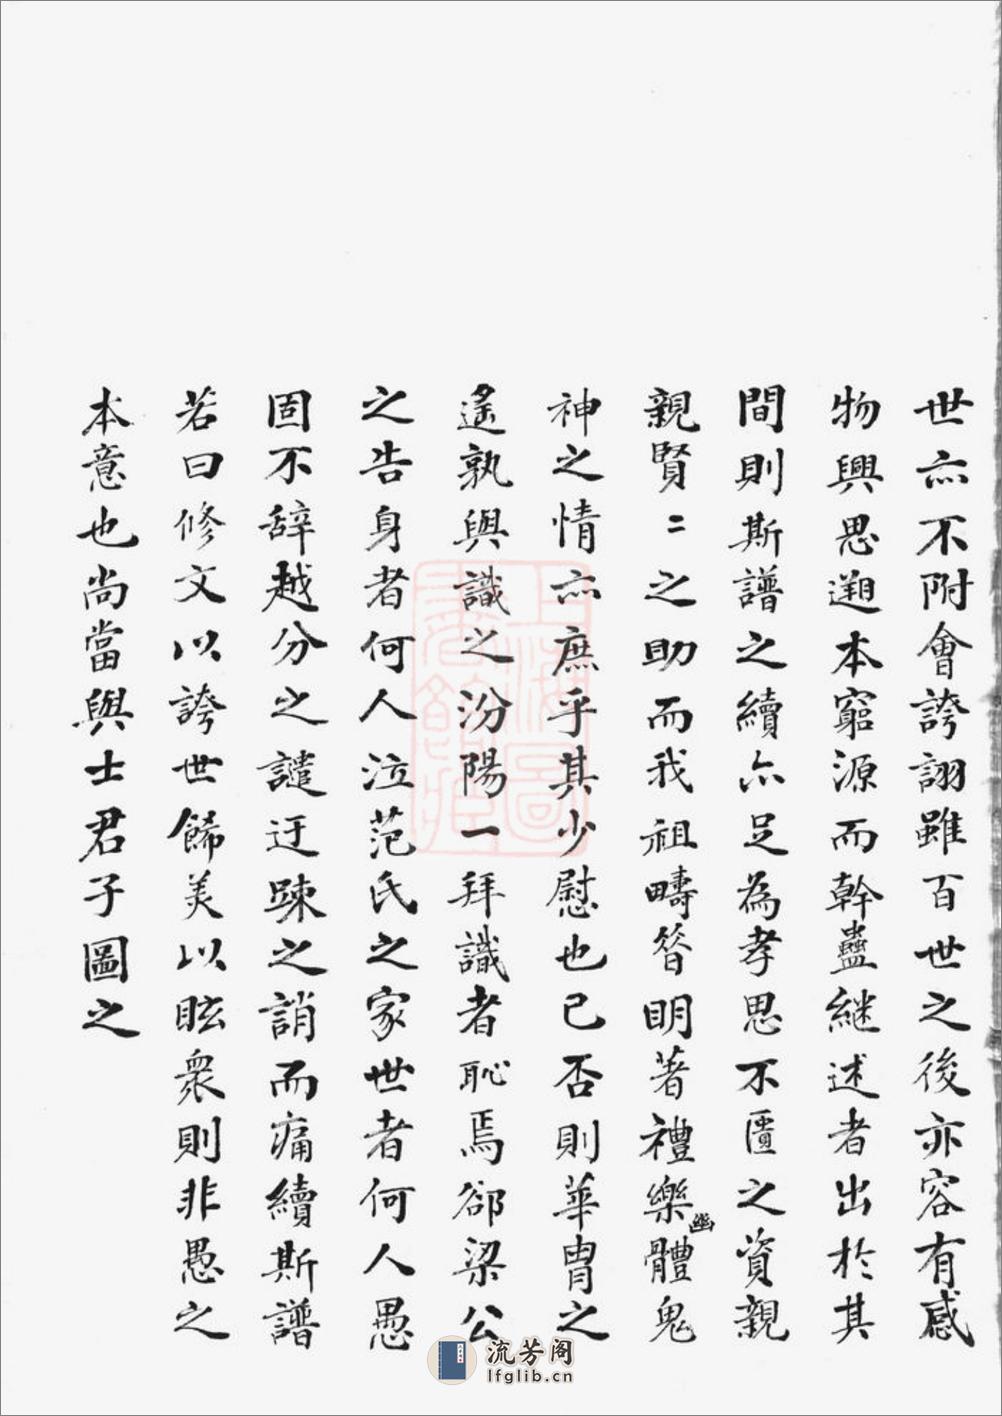 世亦不附會誇詡雖百世之後亦容有感
物興思遡本窮源而幹蠱継述者出於其
間則斯譜之續亦足為孝思不匱之資親
親賢二之助而我祖疇昝明著禮樂幽體鬼
神之情亦庶乎其少慰也已否則華胄之
遙孰與識之汾陽一拜識者恥焉郤梁公
之告身者何人泣范氏之家世者何人愚
固不辞越分之譴迂踈之誚而痛續斯譜
若曰修文以誇世餙美以眩衆則非愚之
本意也尚當與士君子圖之
上海圖書館藏
流芳阁
lfglib.cn